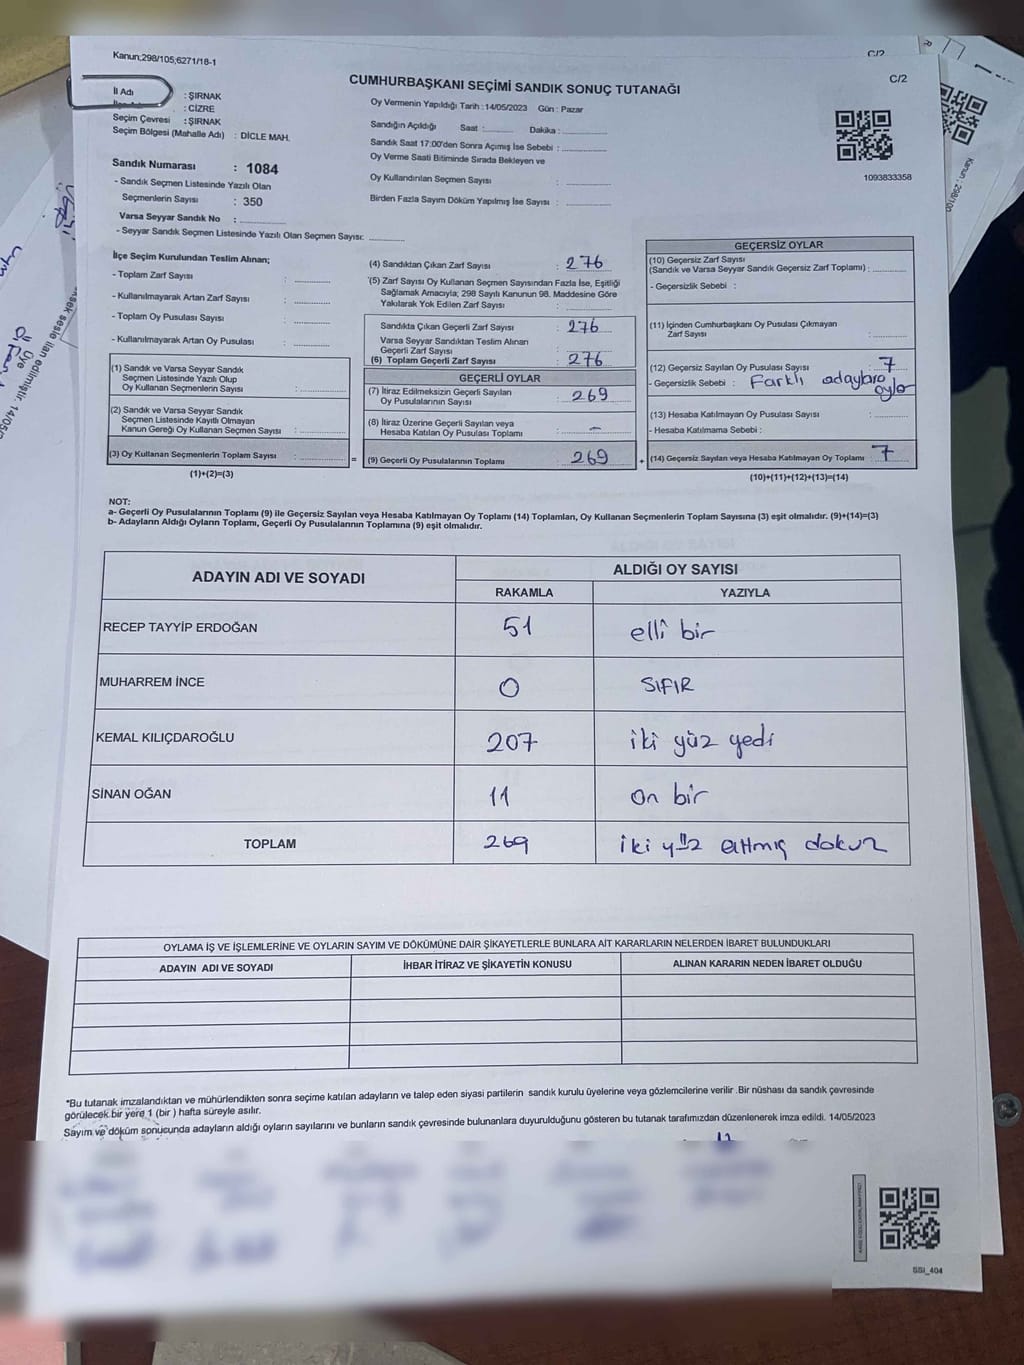 Kanun;298/105;6271/18-1
C/2
C/2
CUMHURBAŞKANI SEÇİMİ SANDIK SONUÇ TUTANAĞI
İl Adı : ŞIRNAK
: CİZRE
Seçim Çevresi : ŞIRNAK
Seçim Bölgesi (Mahalle Adı) : DİCLE MAH.
Oy Vermenin Yapıldığı Tarih : 14/05/2023 Gün : Pazar
Sandığın Açıldığı Saat :.......... Dakika : ..............
Sandık Saat 17:00'den Sonra Açımış İse Sebebi : ..............
Oy Verme Saati Bitiminde Sırada Bekleyen ve
Oy Kullandırılan Seçmen Sayısı : ..............
Birden Fazla Sayım Döküm Yapılmış İse Sayısı : ..............
1093833358
Sandık Numarası : 1084
- Sandık Seçmen Listesinde Yazılı Olan
Seçmenlerin Sayısı : 350
Varsa Seyyar Sandık No : ..............
- Seyyar Sandık Seçmen Listesinde Yazılı Olan Seçmen Sayısı: ..............
İlçe Seçim Kurulundan Teslim Alınan;
- Toplam Zarf Sayısı : ..............
- Kullanılmayarak Artan Zarf Sayısı : ..............
- Toplam Oy Pusulası Sayısı : ..............
- Kullanılmayarak Artan Oy Pusulası : ..............
(1) Sandık ve Varsa Seyyar Sandık
Seçmen Listesinde Yazılı Olup
Oy Kullanan Seçmenlerin Sayısı : ..............
(2) Sandık ve Varsa Seyyar Sandık
Seçmen Listesinde Kayıtlı Olmayan
Kanun Gereği Oy Kullanan Seçmen Sayısı : ..............
(3) Oy Kullanan Seçmenlerin Toplam Sayısı : ..............
(1)+(2)=(3)
(4) Sandıktan Çıkan Zarf Sayısı : 276
(5) Zarf Sayısı Oy Kullanan Seçmen Sayısından Fazla İse, Eşitliği
Sağlamak Amacıyla; 298 Sayılı Kanunun 98. Maddesine Göre
Yakılarak Yok Edilen Zarf Sayısı : ..............
Sandıkta Çıkan Geçerli Zarf Sayısı : 276
Varsa Seyyar Sandıktan Teslim Alınan
Geçerli Zarf Sayısı : ..............
(6) Toplam Geçerli Zarf Sayısı : 276
GEÇERLİ OYLAR
(7) İtiraz Edilmeksizin Geçerli Sayılan
Oy Pusulalarının Sayısı : 269
(8) İtiraz Üzerine Geçerli Sayılan veya
Hesaba Katılan Oy Pusulası Toplamı : -
= (9) Geçerli Oy Pusulalarının Toplamı : 269 +
GEÇERSİZ OYLAR
(10) Geçersiz Zarf Sayısı
(Sandık ve Varsa Seyyar Sandık Geçersiz Zarf Toplamı) : ..............
- Geçersizlik Sebebi :
(11) İçinden Cumhurbaşkanı Oy Pusulası Çıkmayan
Zarf Sayısı : ..............
(12) Geçersiz Sayılan Oy Pusulası Sayısı : 7
- Geçersizlik Sebebi : Farklı adaylara
oylar
(13) Hesaba Katılmayan Oy Pusulası Sayısı : ..............
- Hesaba Katılmama Sebebi :
(14) Geçersiz Sayılan veya Hesaba Katılmayan Oy Toplamı : 7
(10)+(11)+(12)+(13)=(14)
NOT:
a- Geçerli Oy Pusulalarının Toplamı (9) ile Geçersiz Sayılan veya Hesaba Katılmayan Oy Toplamı (14) Toplamları, Oy Kullanan Seçmenlerin Toplam Sayısına (3) eşit olmalıdır. (9)+(14)=(3)
b- Adayların Aldığı Oyların Toplamı, Geçerli Oy Pusulalarının Toplamına (9) eşit olmalıdır.
ADAYIN ADI VE SOYADI ALDIĞI OY SAYISI
RAKAMLA YAZIYLA
RECEP TAYYİP ERDOĞAN 51 elli bir
MUHARREM İNCE 0 SIFIR
KEMAL KILIÇDAROĞLU 207 iki yüz yedi
SİNAN OĞAN 11 on bir
TOPLAM 269 iki yüz altmış dokuz
OYLAMA İŞ VE İŞLEMLERİNE VE OYLARIN SAYIM VE DÖKÜMÜNE DAİR ŞİKAYETLERLE BUNLARA AİT KARARLARIN NELERDEN İBARET BULUNDUKLARI
ADAYIN ADI VE SOYADI İHBAR İTİRAZ VE ŞİKAYETİN KONUSU ALINAN KARARIN NEDEN İBARET OLDUĞU
*Bu tutanak imzalandıktan ve mühürlendikten sonra seçime katılan adayların ve talep eden siyasi partilerin sandık kurulu üyelerine veya gözlemcilerine verilir .Bir nüshası da sandık çevresinde
görülecek bir yere 1 (bir ) hafta süreyle asılır.
Sayım ve döküm sonucunda adayların aldığı oyların sayılarını ve bunların sandık çevresinde bulunanlara duyurulduğunu gösteren bu tutanak tarafımızdan düzenlenerek imza edildi. 14/05/2023
SSI_404
Kanun : 298/105